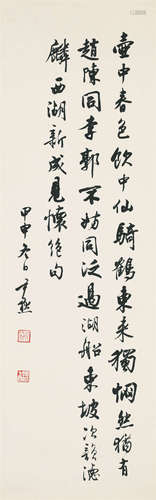 壺中春色飲中仙騎鶴東来獨惘然猶有
趙陳同李郭不妨同泛過湖船東坡次韻德
麟西湖新成見懷絕句
甲申冬日